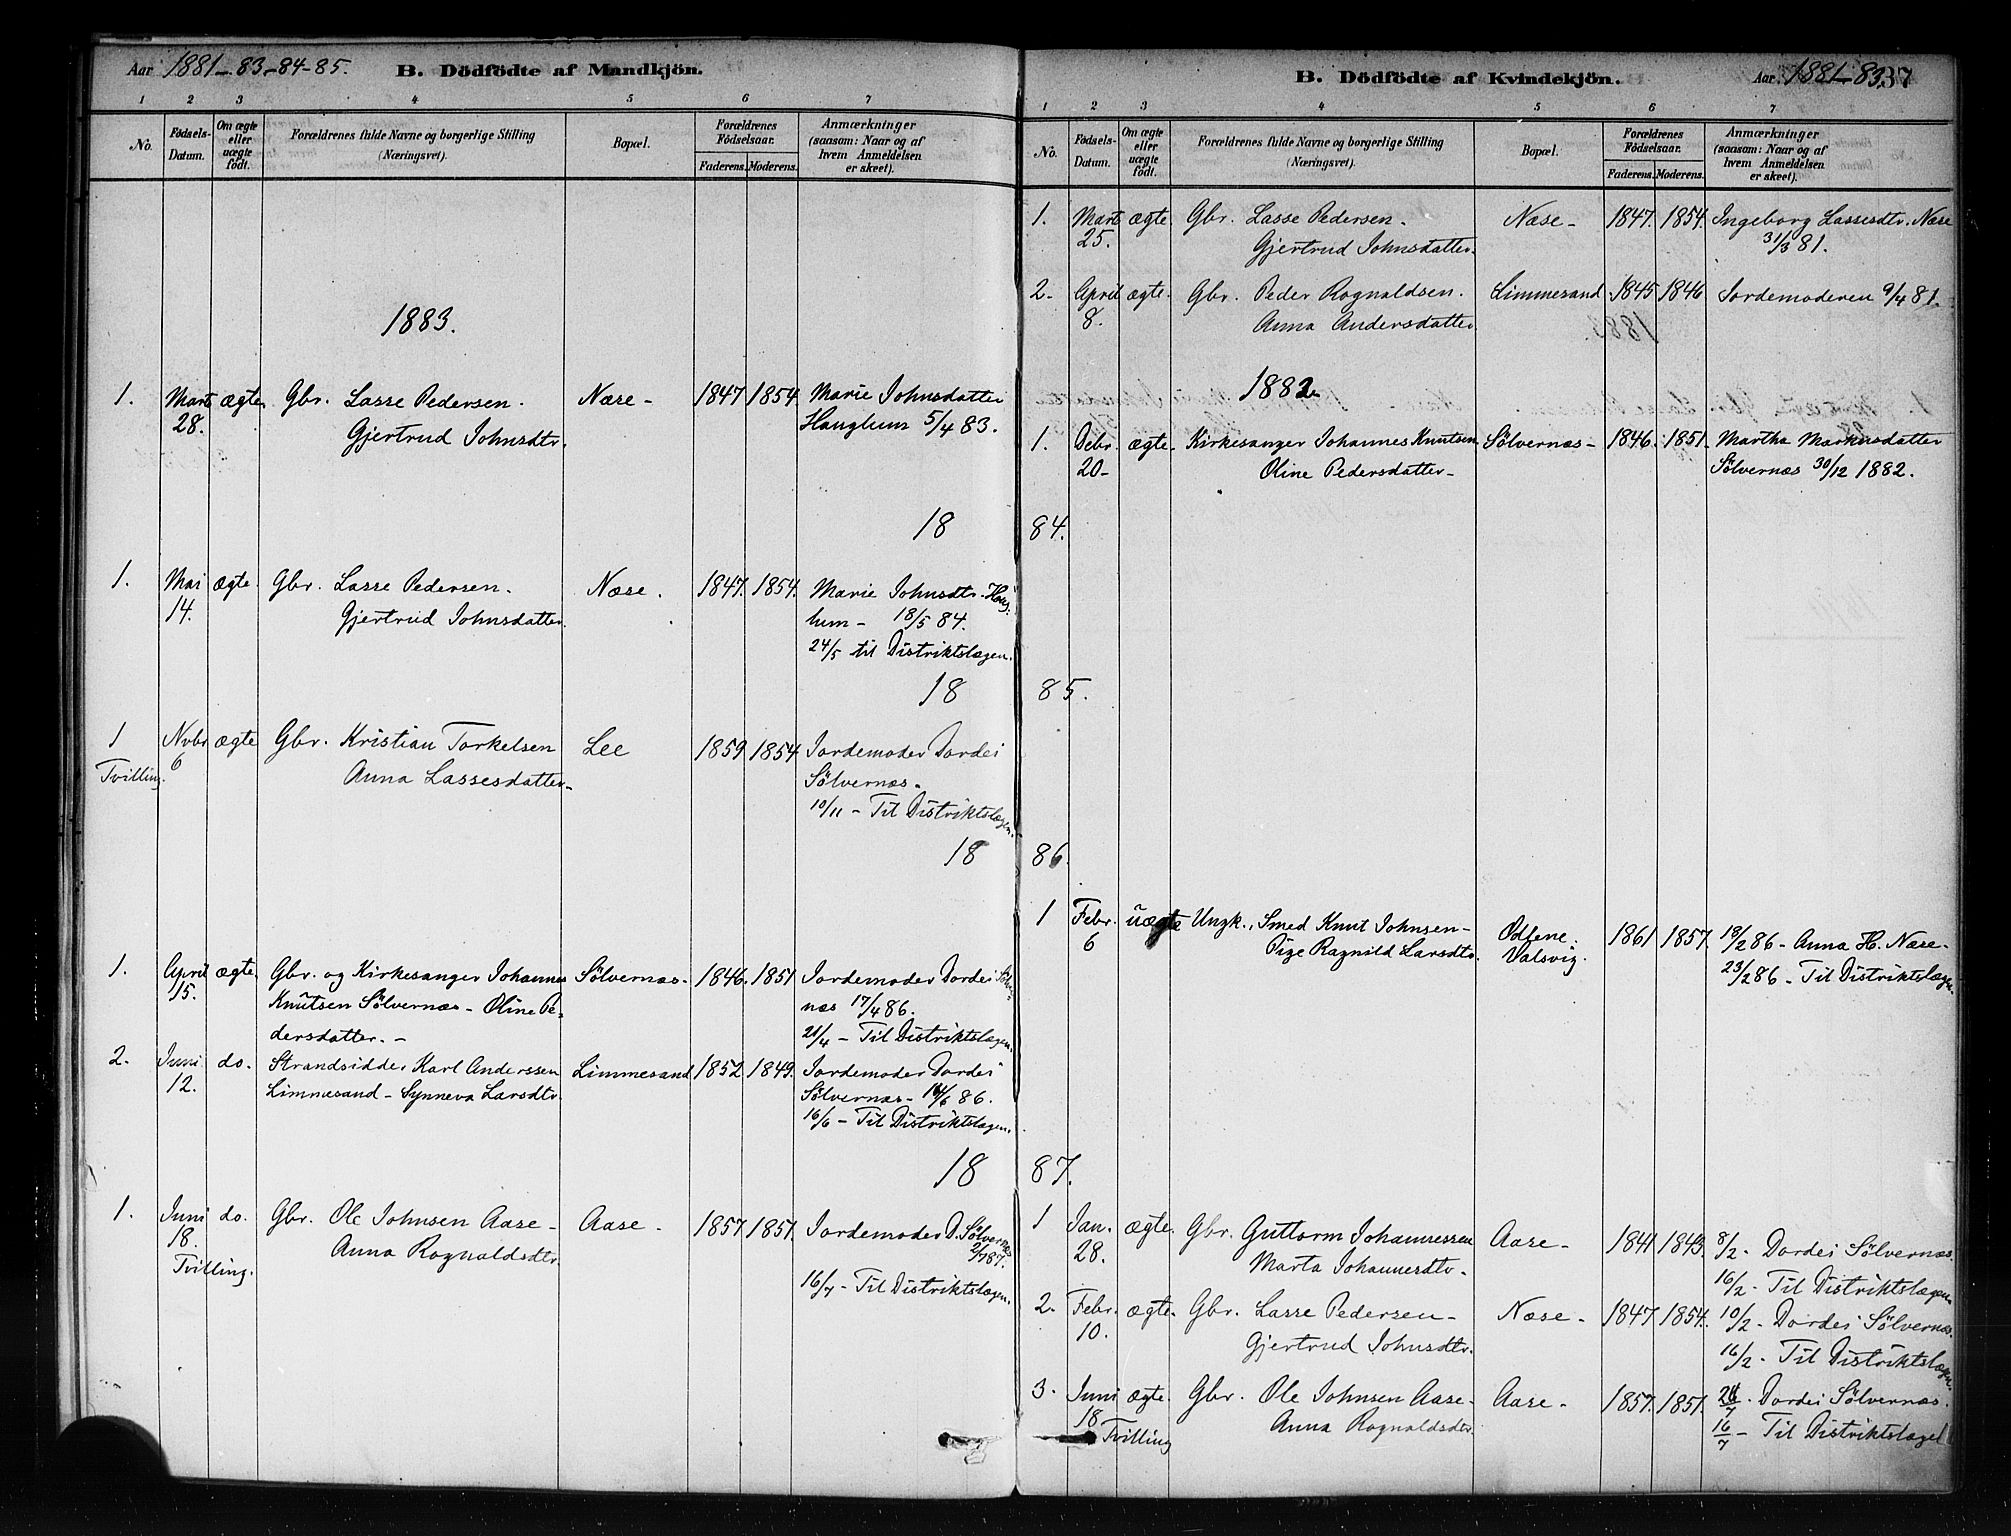 Aar 1881-83-84-85. B. Dödfödte af Mandkjön.
1 2 3 4 5 6 7
No. Födsels-Datum. Om ægte eller uægte födt. Forældrenes fulde Navne og borgerlige Stilling (Næringsvei). Bopæl. Forældrenes Födselsaar. Faderens. Moderens. Anmærkninger (saasom: Naar og af hvem Anmeldelsen er skeet).
1883.
1. Mart ægte Gbr. Lasse Pedersen. Næse - 1847 1854 Marie Johnsdatter
28. Gjertrud Johnsdtr. Hauglum 5/4 83.
18
1. Mai ægte. Gbr. Lasse Pedersen. Næse. 1847. 1854. Marie Johnsdtr. Haug-
14. Gjertrud Johnsdatter. lum - 18/5 84.
24/5 til Distriktslægen.
18
1 Nvbr ægte Gbr. Kristian Torkelsen Lee 1859 1854 Jordemoder Dordei
Tvilling. 6 Anna Lassesdatter - Sölvernæs.
10/11 - Til Distriktslægen.
18
1. April ægte. Gbr. og Kirkesanger Johannes Sölvernæs. 1846. 1851 Jordemoder Dordei Sölver-
15. Knutsen Sölvernæs - Oline Pe- næs 17/4 86.
dersdatter. - 21/4 - Til Distriktslægen.
2. Juni do. Strandsidder Karl Anderssen Limmesand 1852 1849. Jordemoder Dordei
12. Limmesand - Synneva Larsdtr. Sölvernæs - 14/6 86.
16/6 - Til Distriktslægen.
18
1. Juni do. Gbr. Ole Johnsen Aase - Aase. 1857 1851. Jordemoder D. Sölvernæs
18. Anna Rognaldsdtr. 2/7 87.
Tvilling. 16/7 - Til Distriktslægen.
B. Dödfödte af Kvindekjön. Aar 1881-83. 37
1 2 3 4 5 6 7
No. Födsels-Datum. Om ægte eller uægte födt. Forældrenes fulde Navne og borgerlige Stilling (Næringsvei). Bopæl. Forældrenes Födselsaar. Faderens. Moderens. Anmærkninger (saasom: Naar og af hvem Anmeldelsen er skeet).
1. Mart ægte. Gbr. Lasse Pedersen. Næse - 1847. 1854. Ingeborg Lassesdtr. Næse
25. Gjertrud Johnsdatter. 31/3 81.
2. April ægte. Gbr. Peder Rognaldsen. Limmesand 1845 1846 Jordemoderen 9/4 81.
8. Anna Andersdatter
1882
1. Debr. ægte. Kirkesanger Johannes Knutsen Sölvernæs - 1846. 1851. Martha Markusdatter
20 - Oline Pedersdatter - Sölvernæs 30/12 1882.
84.
85.
86.
1 Febr. uægte Ungk., Smed Knut Johnsen - 1861 1857. 18/2 86 - Anna H. Næse -
6 Pige Ragnild Larsdtr. Valsvig. 23/2 86 - Til Distriktslægen.
87.
1 Jan. ægte. Gbr. Guttorm Johannessen Aase - 1841 1843. 8/2 - Dordei Sölvernæs.
28. Marta Johannesdtr. 16/2 - Til Distriktslægen.
2. Febr. ægte. Gbr. Lasse Pedersen - Næse - 1847 1854. 10/2 - Dordei Sölvernæs.
10. Gjertrud Johnsdtr. 16/2 - Til Distriktslægen.
3. Juni ægte. Gbr. Ole Johnsen Aase - Aase - 1857. 1851. Dordei Sölvernæs.
18 Anna Rognaldsdtr. 16/7 - Til Distriktslægel
Tvilling